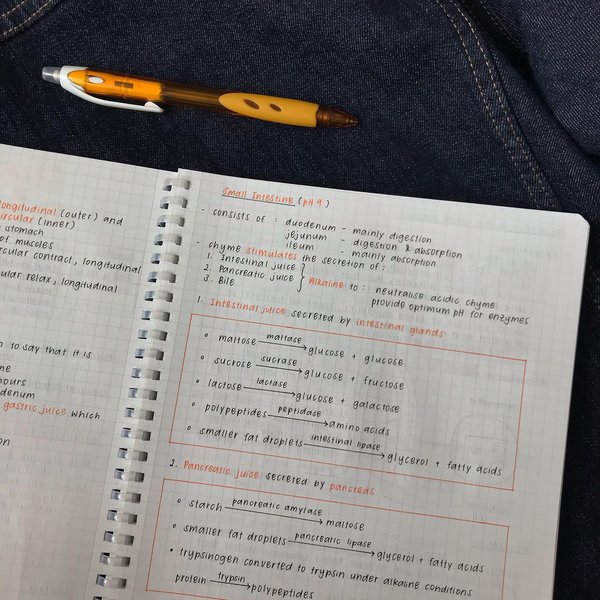 longitudinal (outer) and
circular (inner)
stomach
of muscles
circular contract, longitudinal
circular relax, longitudinal
to say that it is
hours
gastric juice which
Small Intestine (pH 9)
- consists of : duodenum - mainly digestion
jejunum - digestion & absorption
ileum - mainly absorption
- chyme stimulates the secretion of :
1. Intestinal juice
2. Pancreatic juice
3. Bile
Alkaline to : neutralise acidic chyme
provide optimum pH for enzymes
1. Intestinal juice secreted by intestinal glands:
maltose maltase → glucose + glucose
sucrose sucrase → glucose + fructose
lactose lactase → glucose + galactose
polypeptides peptidase → amino acids
smaller fat droplets intestinal lipase → glycerol + fatty acids
2. Pancreatic juice secreted by pancreas
starch pancreatic amylase → maltose
smaller fat droplets pancreatic lipase → glycerol + fatty acids
• trypsinogen converted to trypsin under alkaline conditions
protein trypsin → polypeptides